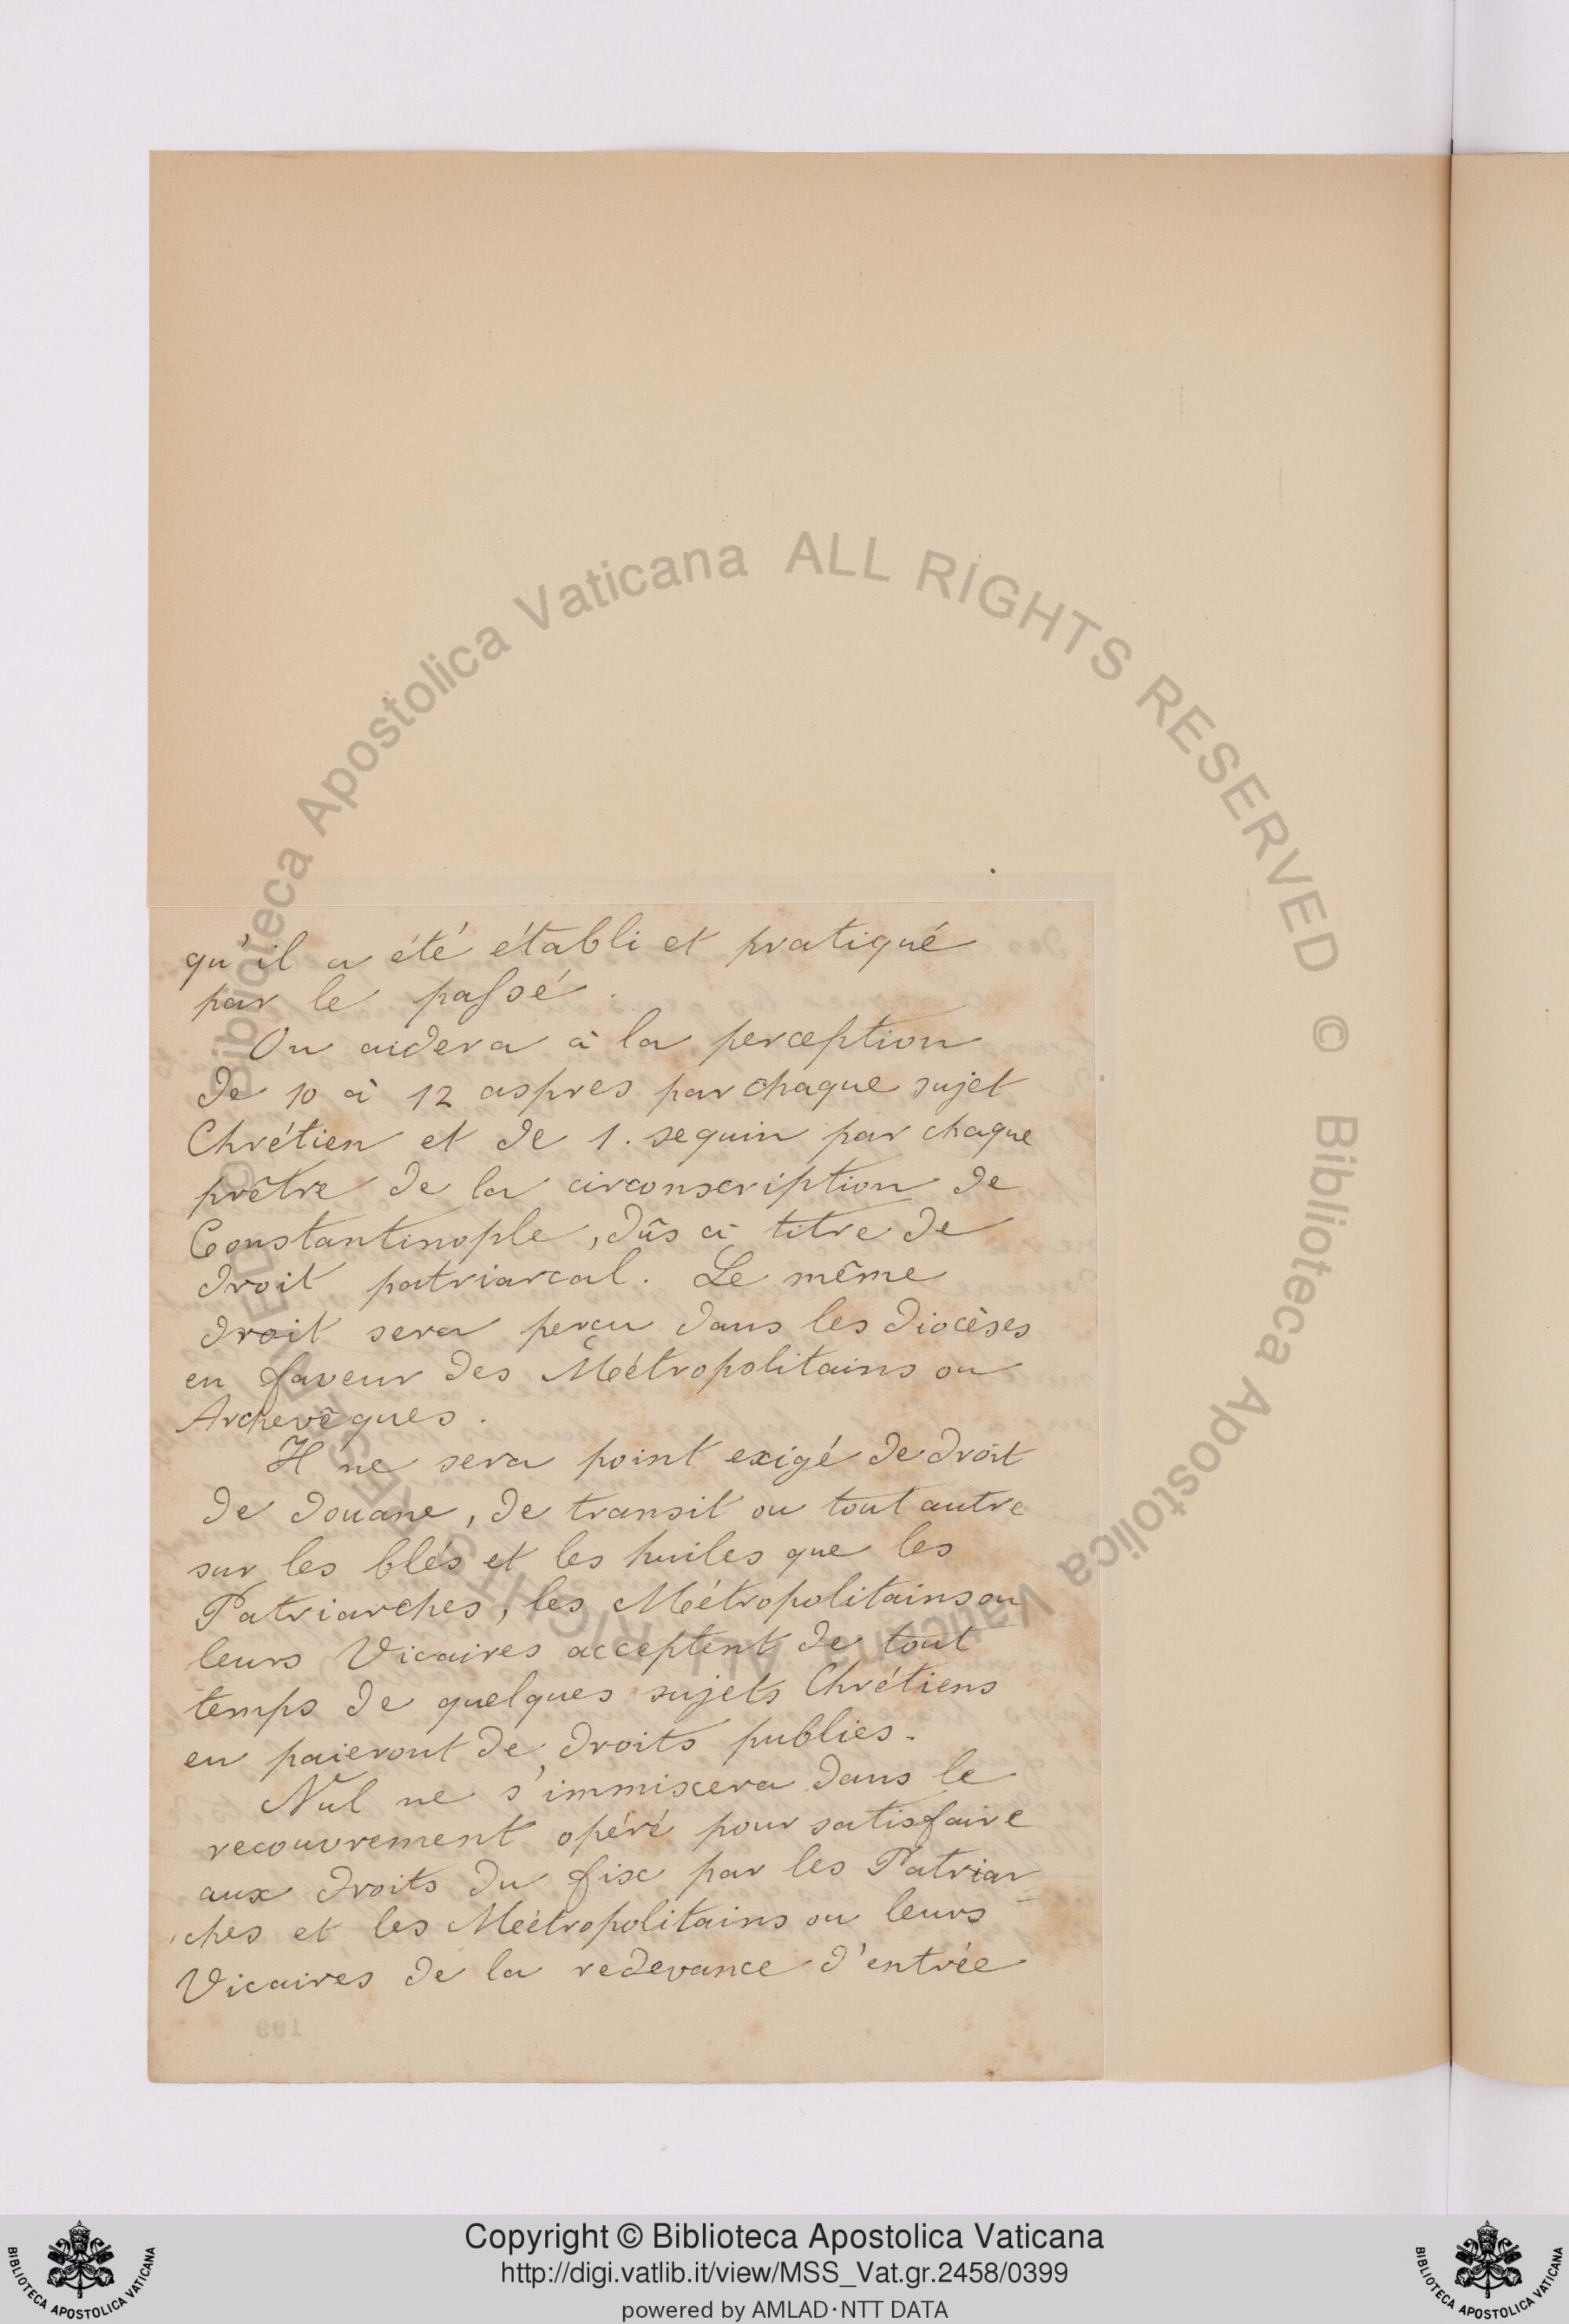 qu'il a été établi et pratiqué
par le passé.
On aidera à la perception
de 10 à 12 aspres par chaque sujet
Chrétien et de 1. sequin par chaque
prêtre de la circonscription de
Constantinople, dûs à titre de
droit patriarcal. Le même
droit sera perçu dans les diocèses
en faveur des Métropolitains ou
Archevêques.
Il ne sera point exigé de droit
de douane, de transit ou tout autre
sur les blés et les huiles que les
Patriarches, les Métropolitains ou
leurs Vicaires acceptent de tout
temps de quelques sujets Chrétiens
en paieront de droits publics.
Nul ne s'immiscera dans le
recouvrement opéré pour satisfaire
aux droits du fisc par les Patriar-
ches et les Métropolitains ou leurs
Vicaires de la redevance d'entrée
199
© Biblioteca Apostolica Vaticana ALL RIGHTS RESERVED © Biblioteca Apostolica Vaticana ALL RIGHTS RESERVED
Copyright © Biblioteca Apostolica Vaticana
http://digi.vatlib.it/view/MSS_Vat.gr.2458/0399
powered by AMLAD·NTT DATA
BIBLIOTECA APOSTOLICA VATICANA
BIBLIOTECA APOSTOLICA VATICANA